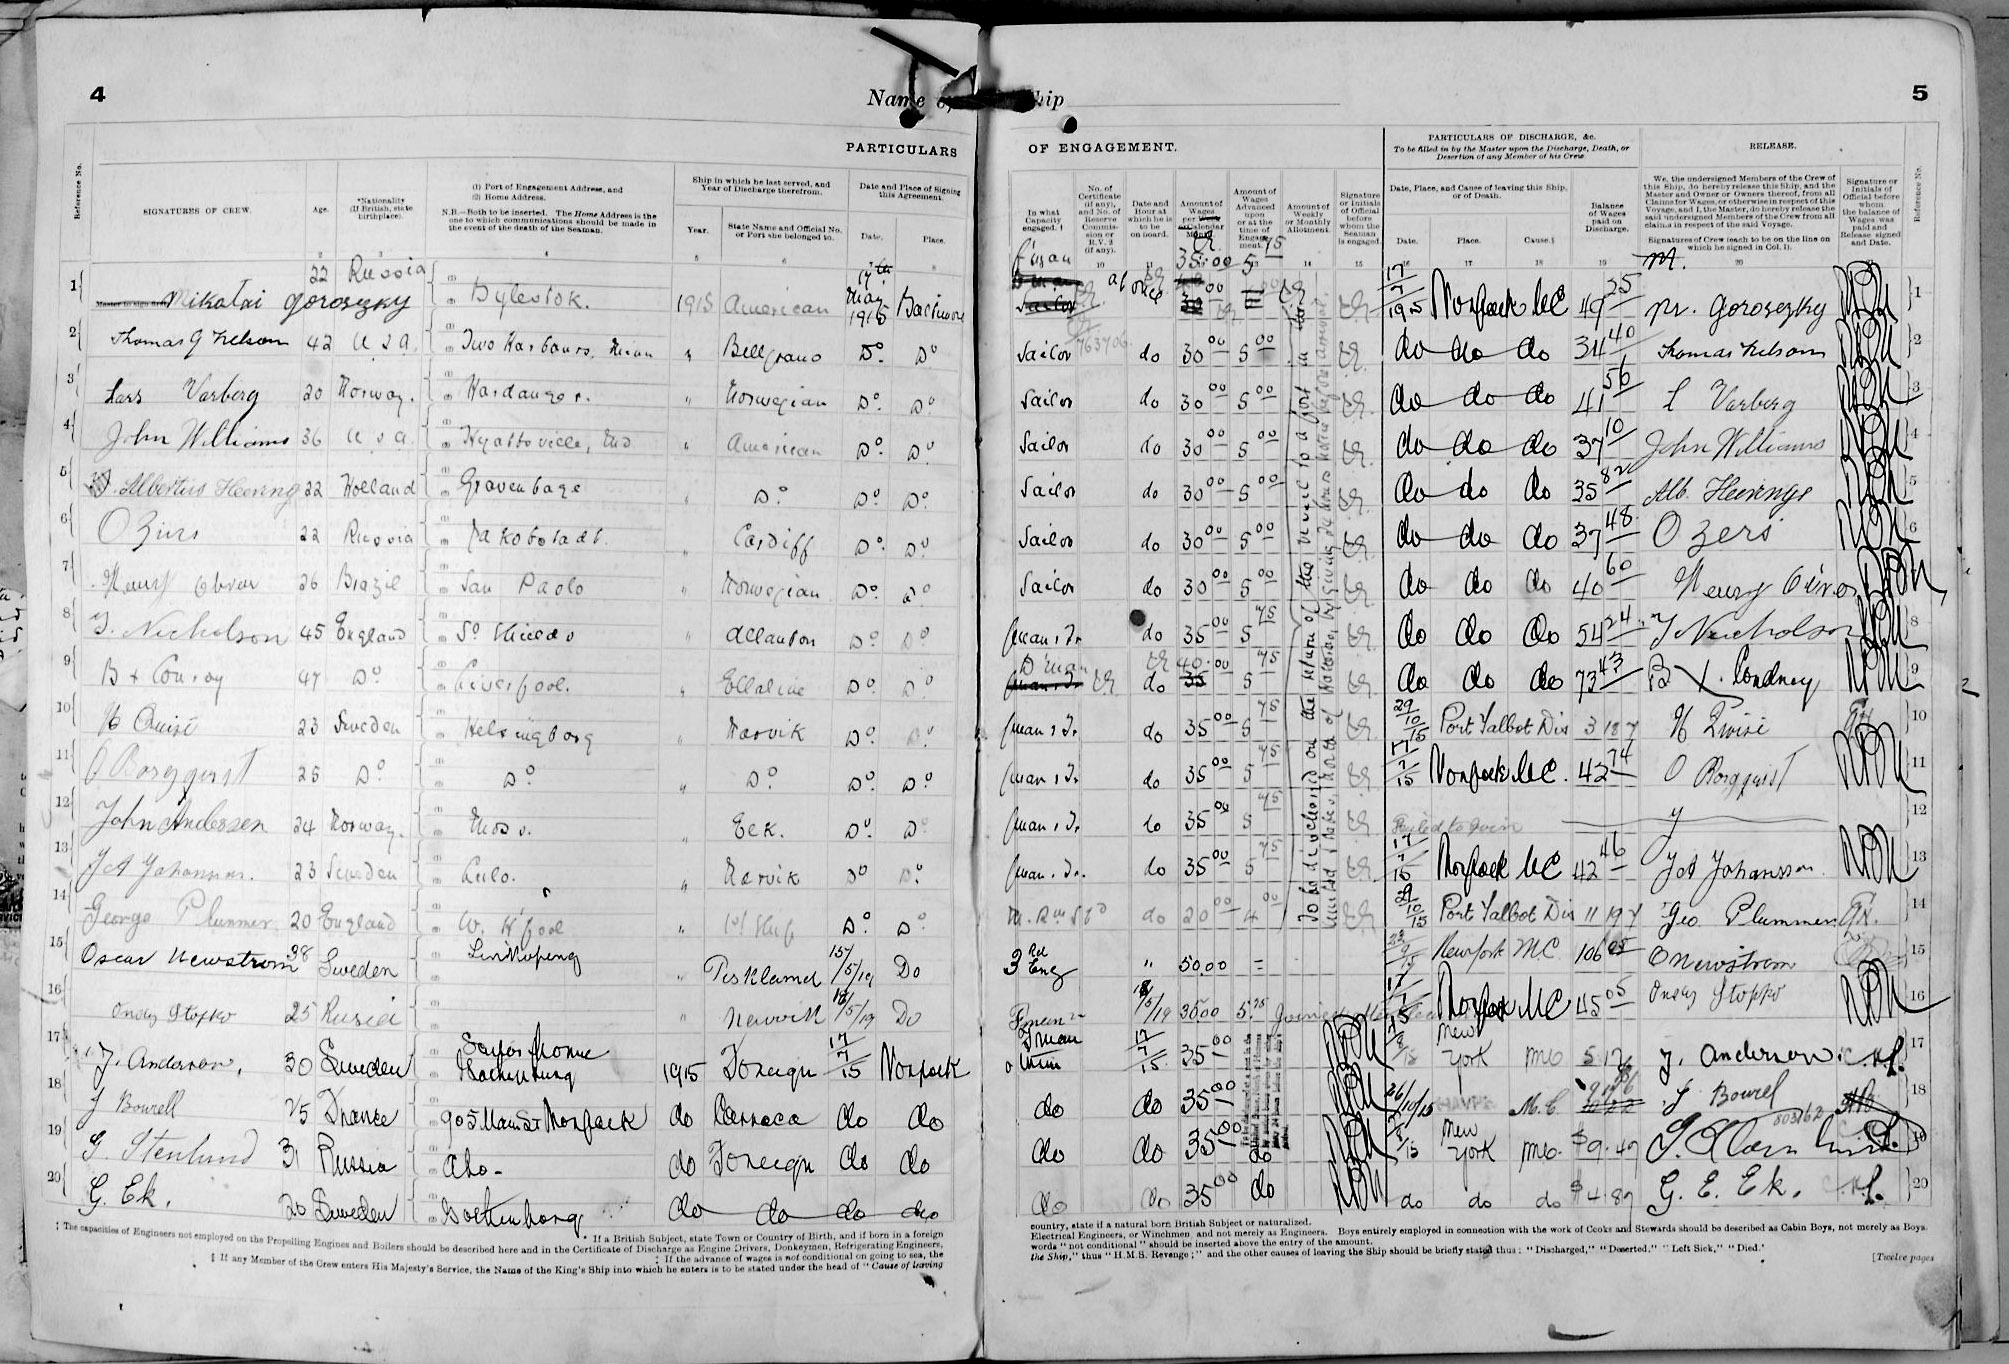 4
Name of Ship
5
PARTICULARS OF ENGAGEMENT.
PARTICULARS OF DISCHARGE, &c.
To be filled in by the Master upon the Discharge, Death, or Desertion of any Member of his Crew
RELEASE.
Reference No.
SIGNATURES OF CREW.
Age.
*Nationality (If British, state birthplace).
(1) Port of Engagement Address, and
(2) Home Address.
N.B.—Both to be inserted. The Home Address is the one to which communications should be made in the event of the death of the Seaman.
Ship in which he last served, and Year of Discharge therefrom.
Year.
State Name and Official No. or Port she belonged to.
Date and Place of Signing this Agreement.
Date.
Place.
In what Capacity engaged.†
No. of Certificate (if any), and No. of Reserve Commission or R.V. 2 (if any).
Date and Hour at which he is to be on board.
Amount of Wages per Calendar Month
Amount of Wages Advanced upon or at the time of Engagement.
Amount of Weekly or Monthly Allotment.
Signature or Initials of Official before whom the Seaman is engaged.
Date, Place, and Cause of leaving this Ship, or of Death.
Date.
Place.
Cause.§
Balance of Wages paid on Discharge.
We, the undersigned Members of the Crew of this Ship, do hereby release this Ship, and the Master and Owner or Owners thereof, from all Claims for Wages, or otherwise in respect of this Voyage, and I, the Master, do hereby release the said undersigned Members of the Crew from all claims in respect of the said Voyage.
Signatures of Crew (each to be on the line on which he signed in Col. 1).
Signature or Initials of Official before whom the balance of Wages was paid and Release signed and Date.
Reference No.
1 Mikatai Goroszky 22 Russia Bylestok. 1915 American 17th May 1915 Baltimore Fman at once 35.00 5 75 17/7/1915 Norfolk MC 49 25 M. Goroszky 1
2 Thomas G Nelson 42 U S A. Two Harbours, Minn " Bellgrano Do Do Sailor 763706 do 30 00 5 00 do do do 34 40 Thomas Nelson 2
3 Lars Varberg 20 Norway. Hardanger. " Norwegian Do. Do Sailor do 30 00 5 00 do do do 41 56 L Varberg 3
4 John Williams 36 U S A. Hyattsville, Md " American Do Do Sailor do 30 00 5 00 do do do 37 10 John Williams 4
5 Albertus Heering 22 Holland Gravenhage " Do. Do Do. Sailor do 30 00 5 00 do do do 35 82 Alb. Heeringe 5
6 O Zirs 22 Russia Jakobstadt. " Cardiff Do. Do Sailor do 30 00 5 00 do do do 37 48 O Zers 6
7 Henry 26 Brazil San Paolo " Norwegian Do. Do Sailor do 30 00 5 00 do do do 40 60 Henry 7
8 T. Nicholson 45 England So Shields " Allanton Do Do Fman & Tr. do 35 00 5 75 do do do 54 24 T Nicholson 8
9 B x Conroy 47 Do Liverpool. " Ellaline Do Do D Man do 40.00 5 75 do do do 73 43 B X. Condney 9
10 H Quist 23 Sweden Helsingborg " Narvik Do Do Fman & Tr. do 35 00 5 75 29/10/15 Port Talbot Dis 3 18 7 H Qvist 10
11 O Borgqvist 25 Do. Do " Do. Do Do. Fman & Tr. do 35 00 5 75 17/7/15 Norfolk MC. 42 74 O Borgqvist 11
12 John Andersen 24 Norway. Moss. " Eek. Do Do Fman & Tr. do 35 00 5 75 Failed to Join 12
13 23 Sweden Lulo. " Narvik Do Do. Fman & Tr. do 35 00 5 75 17/7/15 Norfolk MC 42 46 Johansson. 13
14 George Plummer 20 England W. H'pool " 1st Ship Do. Do M. Rm Std do 20 00 4 00 29/10/15 Port Talbot Dis 11 19 7 Geo Plummer 14
15 Oscar Newstrom 38 Sweden Linkoping " 15/5/19 Do 3rd Eng " 50.00 = New York M.C. 106 05 O Newstrom 15
16 Stopko 25 Rusia " 18/5/19 Do Fman 18/5/19 35.00 5.75 Norfolk MC 45 05 Stopko 16
17 J. Anderson, 30 Sweden Sailors Home 1915 Foreign 17/7/15 Norfolk Fman 17/7/15. 35 00 New York MC J. Anderson. 17
18 J Bowell 25 France 905 Main St Norfolk do Carraca do do do do 35 00 26/10/15 HAVRE M.C. J Bowel 18
19 G. Stenlund 31 Russia Abo- do Foreign do do do do 35 00 do New York MC. $ 9.49 803162 19
20 G. Ek. 20 Sweden Gothenborg do do do do do do 35 00 do do do do $ 4.87 G. E. Ek. 20
To be discharged on the return of the vessel to a port in the United States, North of Hatteras, by giving 24 hours notice before arrival.
* If a British Subject, state Town or Country of Birth, and if born in a foreign country, state if a natural born British Subject or naturalized.
† The capacities of Engineers not employed on the Propelling Engines and Boilers should be described here and in the Certificate of Discharge as Engine Drivers, Donkeymen, Refrigerating Engineers, Electrical Engineers, or Winchmen, and not merely as Engineers. Boys entirely employed in connection with the work of Cooks and Stewards should be described as Cabin Boys, not merely as Boys.
‡ If the advance of wages is not conditional on going to sea, the words "not conditional" should be inserted above the entry of the amount.
§ If any Member of the Crew enters His Majesty's Service, the Name of the King's Ship into which he enters is to be stated under the head of "Cause of leaving the Ship," thus "H.M.S. Revenge;" and the other causes of leaving the Ship should be briefly stated thus: "Discharged," "Deserted," "Left Sick," "Died."
[Twelve pages